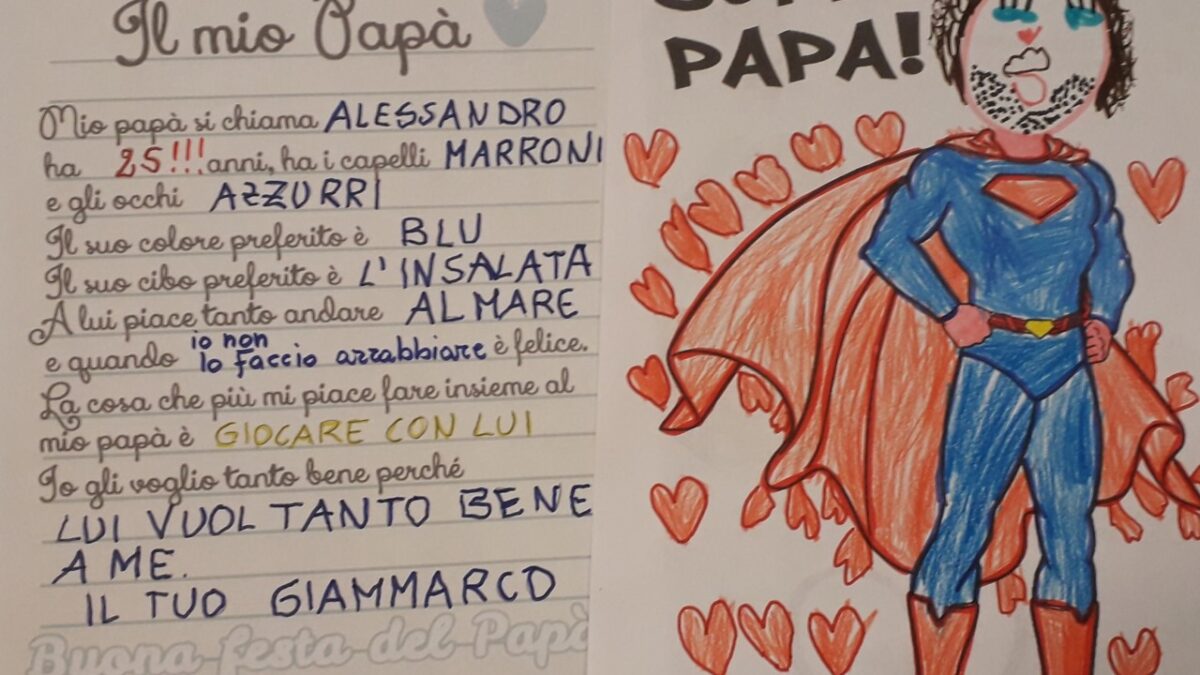 Il mio Papà
Mio papà si chiama ALESSANDRO
ha 25!!! anni, ha i capelli MARRONI
e gli occhi AZZURRI
Il suo colore preferito è BLU
Il suo cibo preferito è L'INSALATA
A lui piace tanto andare AL MARE
e quando io non
lo faccio arrabbiare è felice.
La cosa che più mi piace fare insieme al
mio papà è GIOCARE CON LUI
Io gli voglio tanto bene perché
LUI VUOL TANTO BENE
A ME.
IL TUO GIAMMARCO
Buona festa del Papà
PAPA!